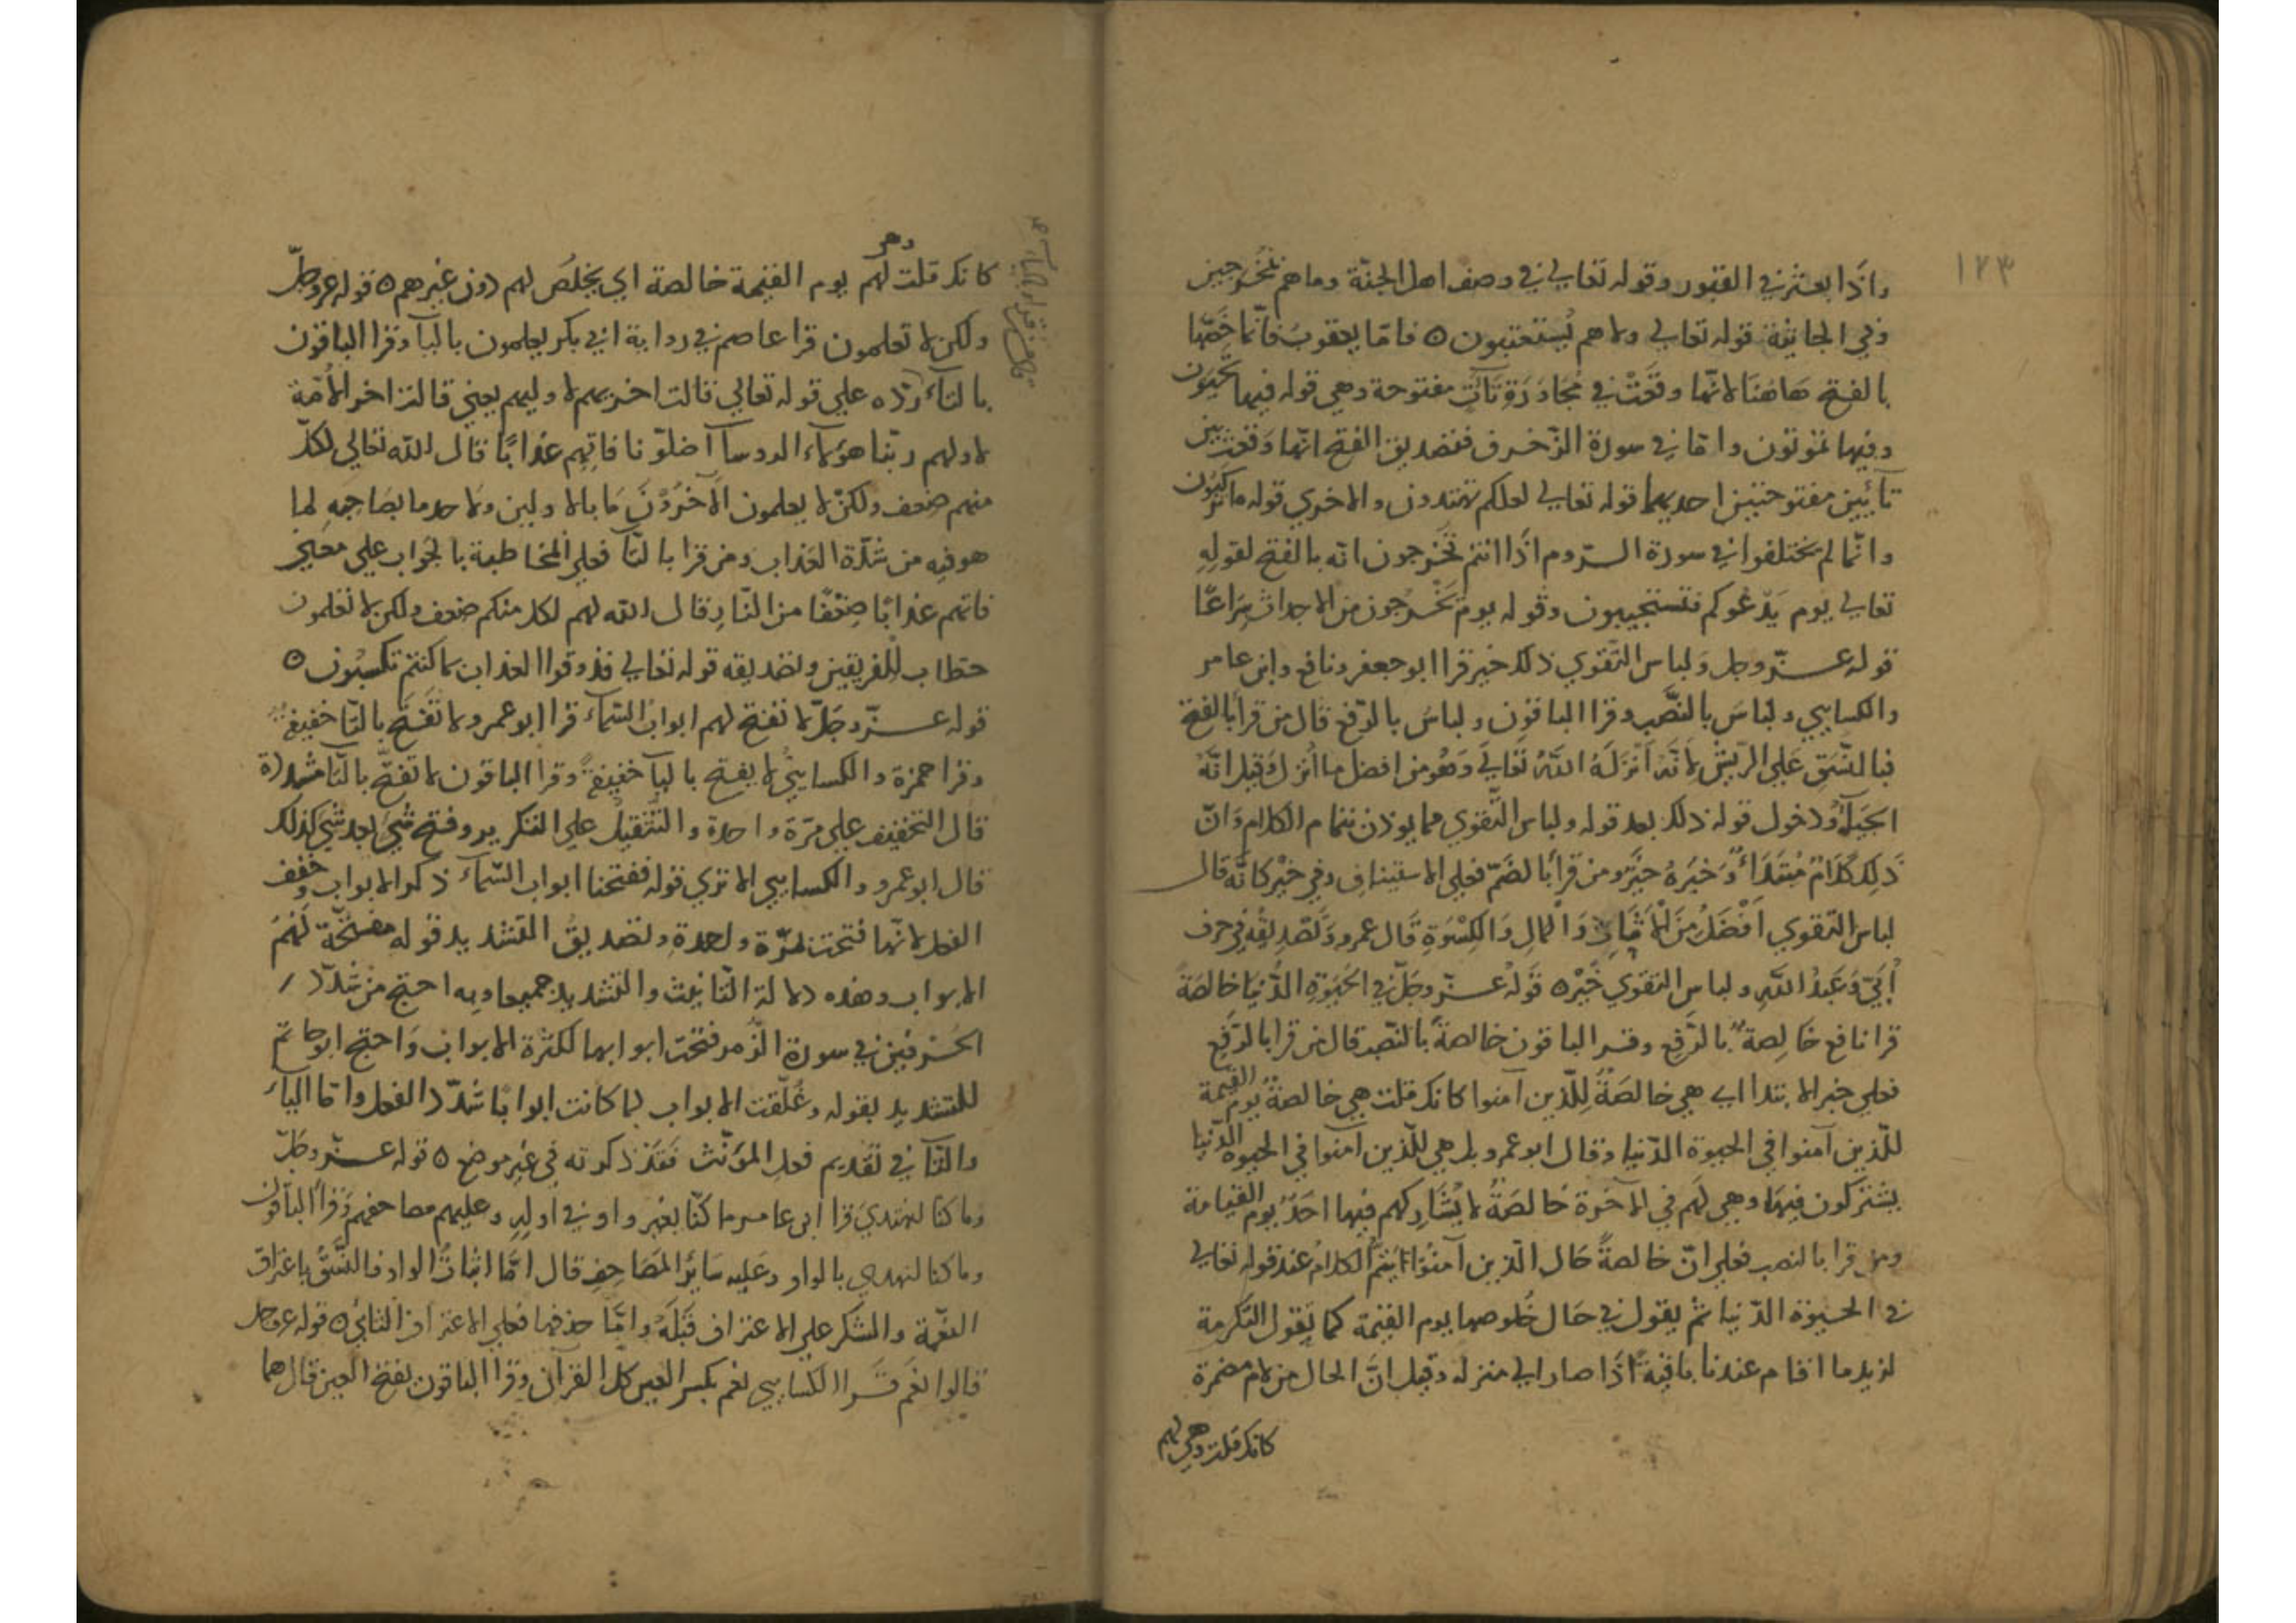 ١٢٣
واذا بعثر في القبور وقوله تعالى في وصف اهل الجنّة وما هم بمخرجين
وفي الجاثية قوله تعالى ولا هم يُستعتبون ٥ فامّا يعقوب فانّما خصّها
بالفتح هاهنا لانّها وقعت في مجاورة تآآت مفتوحة وهي قوله فيها تحيون
وفيها تموتون وامّا في سورة الزّخرف فتصديق الفتح انّها وقعت بين
تآئين مفتوحتين احديهما قوله تعالى لعلكم تهتدون والاخرى قوله ما تركبون
وانّما لم يختلفوا في سورة الرّوم اذا انتم تخرجون انّه بالفتح لقوله
تعالى يوم يدعوكم فتستجيبون وقوله يوم يخرجون من الاجداث سراعًا
قوله عزّ وجل ولباس التقوى ذلك خير قرا ابو جعفر ونافع وابن عامر
والكسايي ولباسَ بالنّصب وقرا الباقون ولباسُ بالرّفع قال من قرا بالفتح
فبالنّسق على الرّيش لانّه انزله الله تعالى وهو من افضل ما انزل وقيل انّه
الحيآء ودخول قوله ذلك بعد قوله ولباس التّقوى مما يوذن بتمام الكلام وانّ
ذلك كلامٌ مبتداءٌ وخبره خيرٌ ومن قرا بالضمّ فعلى الاستيناف وفي خيرٌ كانّه قال
لباس التقوى افضل من الاثاث والمال والكسوة قال عمرو وتصديقه في حرف
اُبَيّ وعبد الله ولباس التقوى خيرٌ ٥ قوله عزّ وجلّ في الحيوة الدّنيا خالصة
قرا نافع خالصةٌ بالرّفع وقرا الباقون خالصةً بالنّصب قال من قرا بالرّفع
فعلى خبر الابتدا اي هي خالصةٌ للّذين آمنوا كانك قلت هي خالصةٌ يوم القيمة
للّذين آمنوا في الحيوة الدّنيا وقال ابو عمرو بل هي للّذين آمنوا في الحيوة الدّنيا
يشتركون فيها وهي لهم في الآخرة خالصةٌ لا يُشاركهم فيها احدٌ يوم القيامة
ومن قرا بالنصب فعلى انّ خالصةً حال الّذين آمنوا يتمّ الكلام عند قوله تعالى
في الحيوة الدّنيا ثم يقول في حال خُلوصها يوم القيمة كما يقول التكرمة
لزيد ما اقام عندنا باقيةً اذا صار الى منزله وقيل انّ الحال من لام مضمرة
كانك قلت وهي لهم
كانك قلت وهي لهم يوم القيمة خالصة اي يخلُص لهم دون غيرهم ٥ قوله عزّ وجلّ
ولكن لا تعلمون قرا عاصم في رواية ابي بكر يعلمون باليآ وقرا الباقون
بالتآء ردّه على قوله تعالى قالت اخريهم لاوليهم يعني قالت اخر الامّة
لاولهم ربّنا هؤلآء الروسآ اضلّونا فاتهم عذابًا قال الله تعالى لكلّ
منهم ضعف ولكن لا يعلمون الآخرون ما بالاولين ولا احد ما بصاحبه لما
هو فيه من شدّة العذاب ومن قرا بالتآ فعلى المخاطبة بالجواب على معنى
فاتهم عذابًا ضعفًا من النّار قال الله لهم لكل منكم ضعف ولكن لا تعلمون
خطاب للفريقين وتصديقه قوله تعالى فذوقوا العذاب بما كنتم تكسبون ٥
قوله عزّ وجلّ لا تفتح لهم ابواب السّمآء قرا ابو عمرو لا تُفتَح بالتّا خفيفةً
وقرا حمزة والكسايي لا يفتح باليآ خفيفةً وقرا الباقون لا تفتّح بالتّآ مشدّدة
قال التخفيف على مرّة واحدة والتّثقيل على التكرير وفتح شيء بعد شيء كذلك
قال ابو عمرو والكسايي الا ترى قوله ففتحنا ابواب السّمآء ذكر الابواب وخفف
الفعل لانّها فتحت مرّة واحدة وتصديق التشديد قوله مفتّحة لهم
الابواب وهذه دلالة التّانيث والتشديد جميعا وبه احتجّ من شدّد
الحرفين في سورة الزّمر فتحت ابوابها لكثرة الابواب واحتج ابو حاتم
للتشديد بقوله وغلّقت الابواب لما كانت ابوابًا شدّد الفعل وامّا اليآء
والتّآ في تقديم فعل المؤنّث فقد ذكرته في غير موضع ٥ قوله عزّ وجلّ
وما كنّا لنهتدي قرا ابن عامر ما كنّا بغير واو في اوله وعليهم مصاحفهم وقرا الباقون
وما كنا لنهتدي بالواو وعليه سائر المصاحف قال امّا اثبات الواو فالنّسق باعتراف
النعمة والشكر على الاعتراف قبله وامّا حذفها فعلى الاعتراف الثاني ٥ قوله عزّ وجل
قالوا نعم قرا الكسايي نعِم بكسر العين كل القرآن وقرا الباقون بفتح العين قال هما